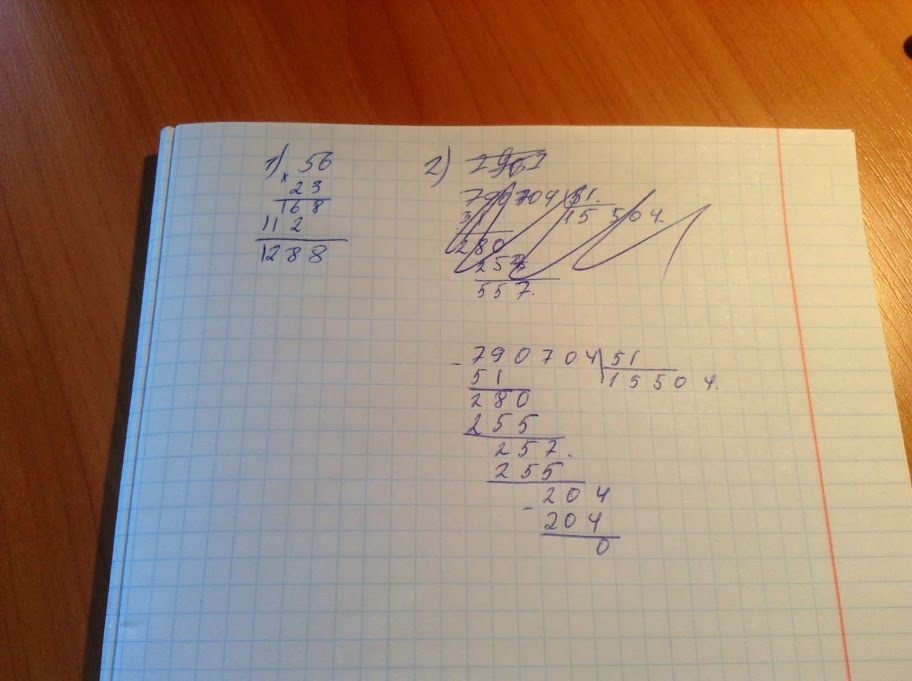 1) 56
× 23
168
112
1288
2) 7967
790704 51.
3 15504.
280
255
557.
- 790704 51
51 15504.
280
255
257.
255
- 204
204
0